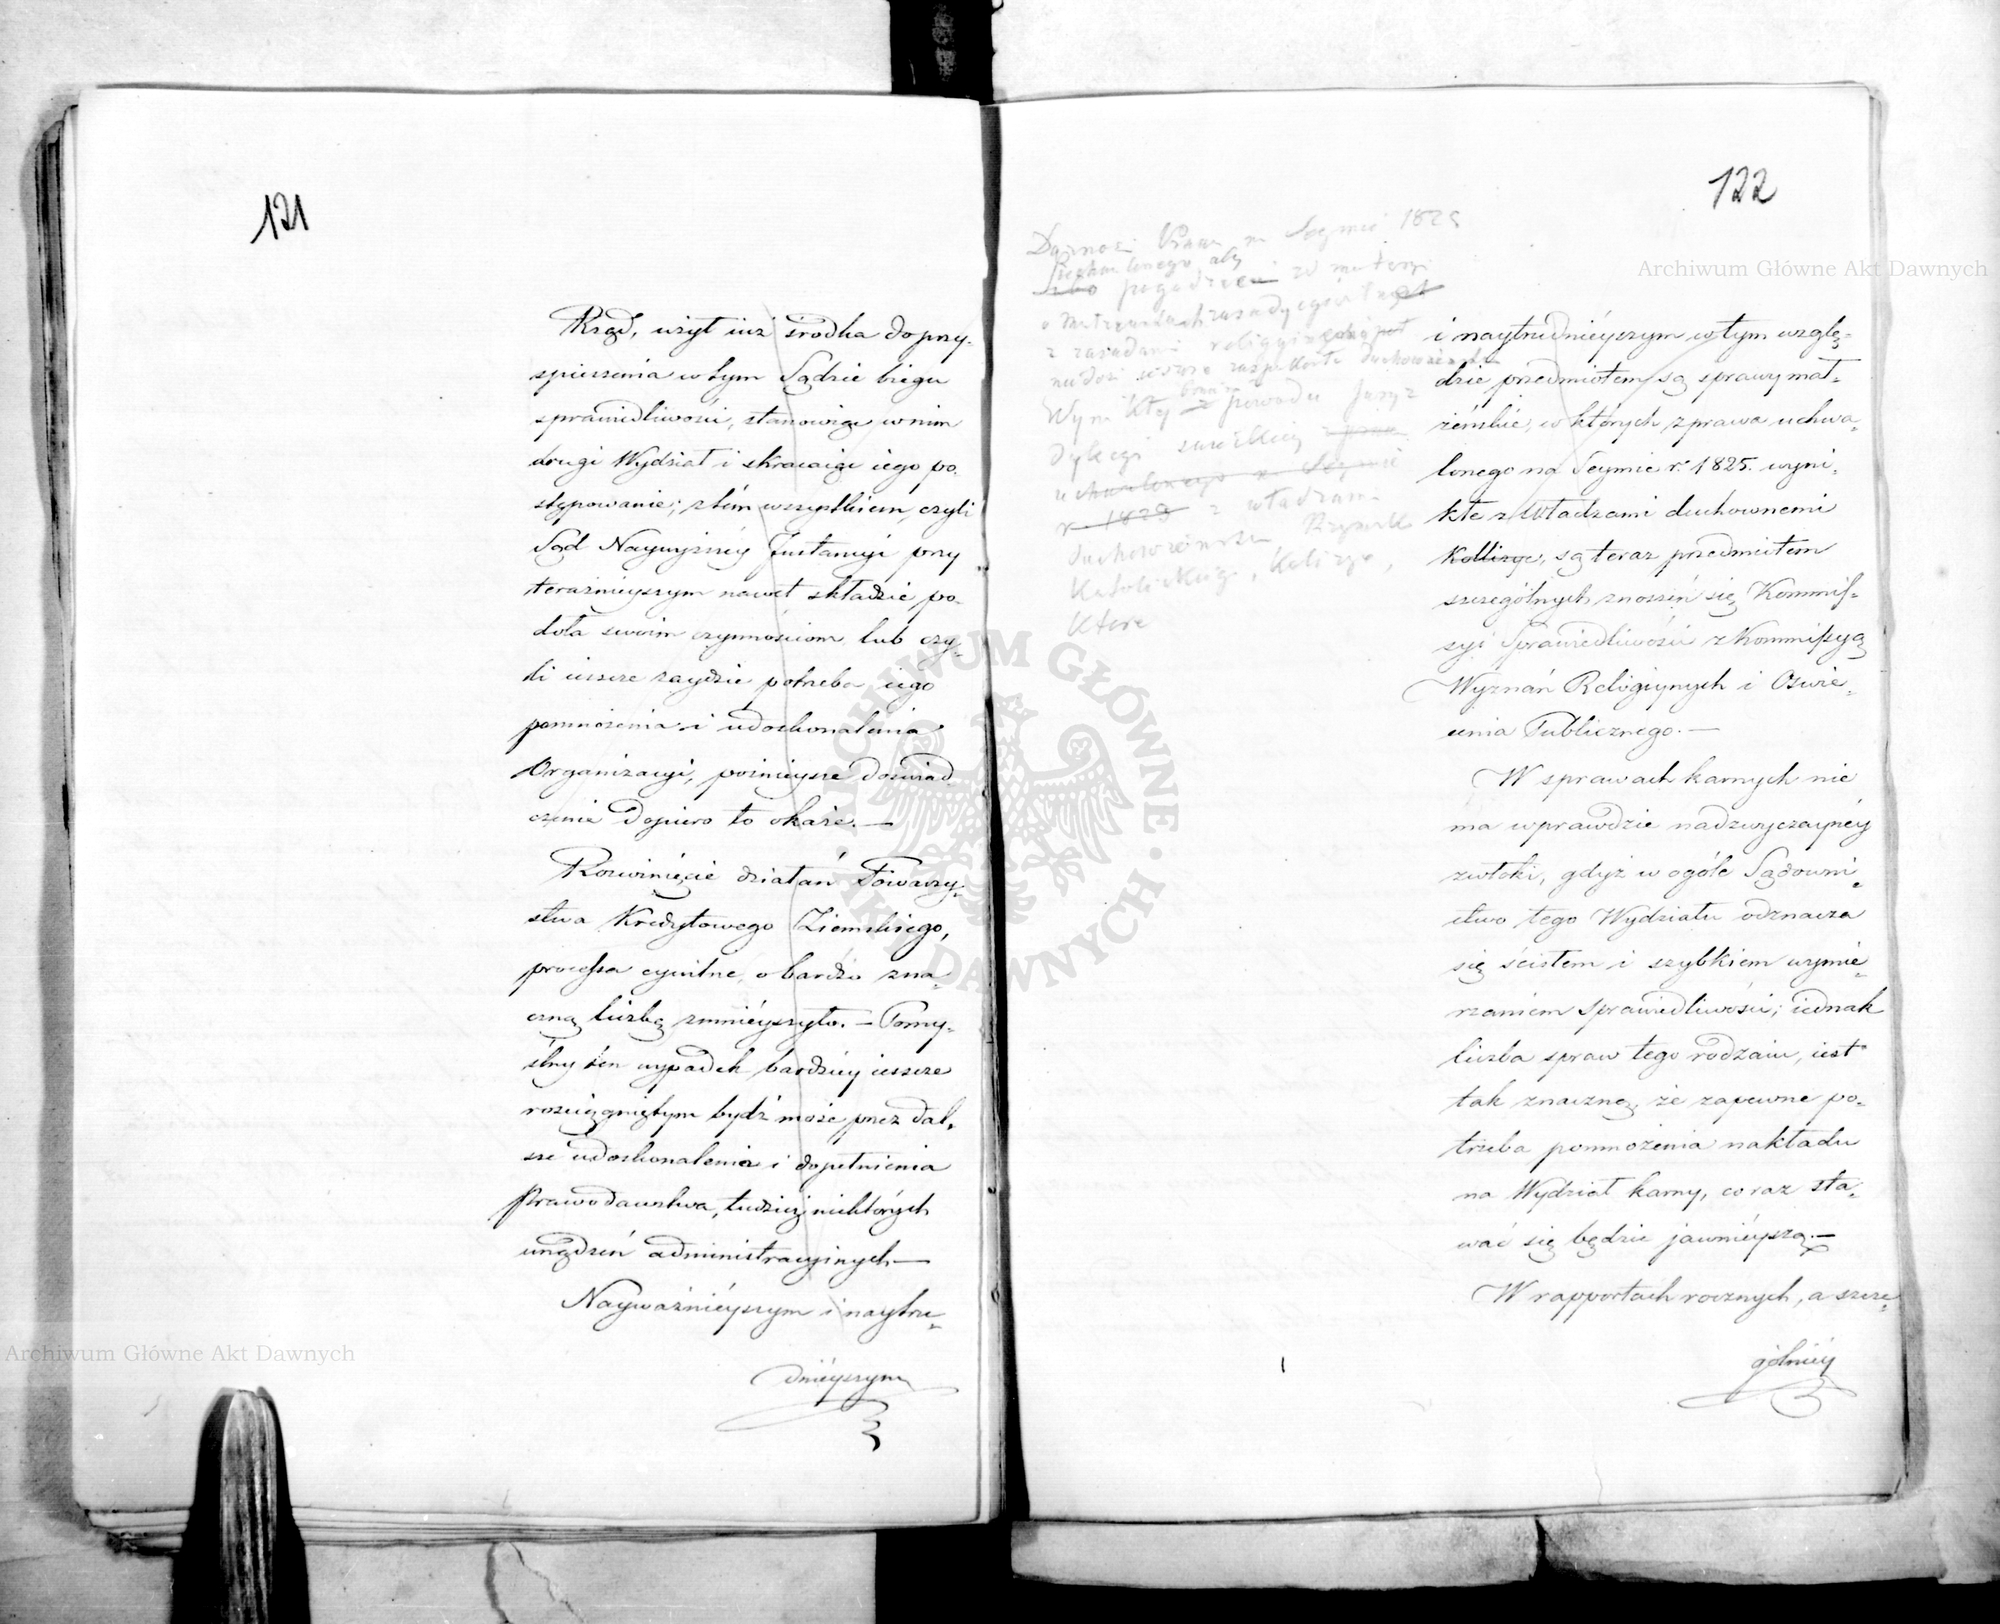 121
Rząd, użył iuż środka do przy-
spieszenia w tym Sądzie biegu
sprawiedliwości, stanowiąc w nim
drugi Wydział i skracaiąc iego po-
stępowanie; z tém wszystkiem, czyli
Sąd Naywyższéy Instancyi przy
teraźnieyszym nawet składzie po-
doła swoim czynnościom lub czy-
li ieszcze zaydzie potrzeba iego
pomnożenia i udoskonalenia
Organizacyi, poźnieysze doświad-
czenie dopiero to okaże. —
Rozwinięcie działań Towarzy-
stwa Kredytowego Ziemskiego,
processa cywilne, o bardzo zna-
czną liczbę zmnieyszyło. — Pomy-
ślny ten wypadek bardziéy ieszcze
rozciągniętym bydź może przez dal-
sze udoskonalenia i dopełnienia
Prawodawstwa, tudzież niektórych
urządzeń administracyinych —
Nayważnieyszym i naytru-
dnieyszym
Archiwum Główne Akt Dawnych
122
Archiwum Główne Akt Dawnych
Sejmie 1825
aby
z zasadami religii
Wym
z powodu Jury z
dykcyi
uchwalonego na Sejmie
r. 1825 z władzami
Duchowieństwa
Katolickiego, Kolizye,
które
i naytrudnieyszym w tym wzglę-
dzie przedmiotem są sprawy mał-
żeńskie, w których z prawa uchwa-
lonego na Seymie r. 1825. wyni-
kłe z Władzami duchownemi
Kollizye, są teraz przedmiotem
szczególnych znoszeń się Kommis-
syi Sprawiedliwości z Kommissyą
Wyznań Religiynych i Oświe-
cenia Publicznego. —
W sprawach karnych nie
ma wprawdzie nadzwyczaynéy
zwłoki, gdyż w ogóle Sądowni-
ctwo tego Wydziału odznacza
się ścisłem i szybkiem wymie-
rzaniem sprawiedliwości; iednak
liczba spraw tego rodzaiu, iest
tak znaczną, że zapewne po-
trzeba pomnożenia nakładu
na Wydział karny, coraz sta-
wać się będzie jawnieyszą. —
W rapportach rocznych, a szcze-
gólniéy
ARCHIWUM GŁÓWNE AKT DAWNYCH